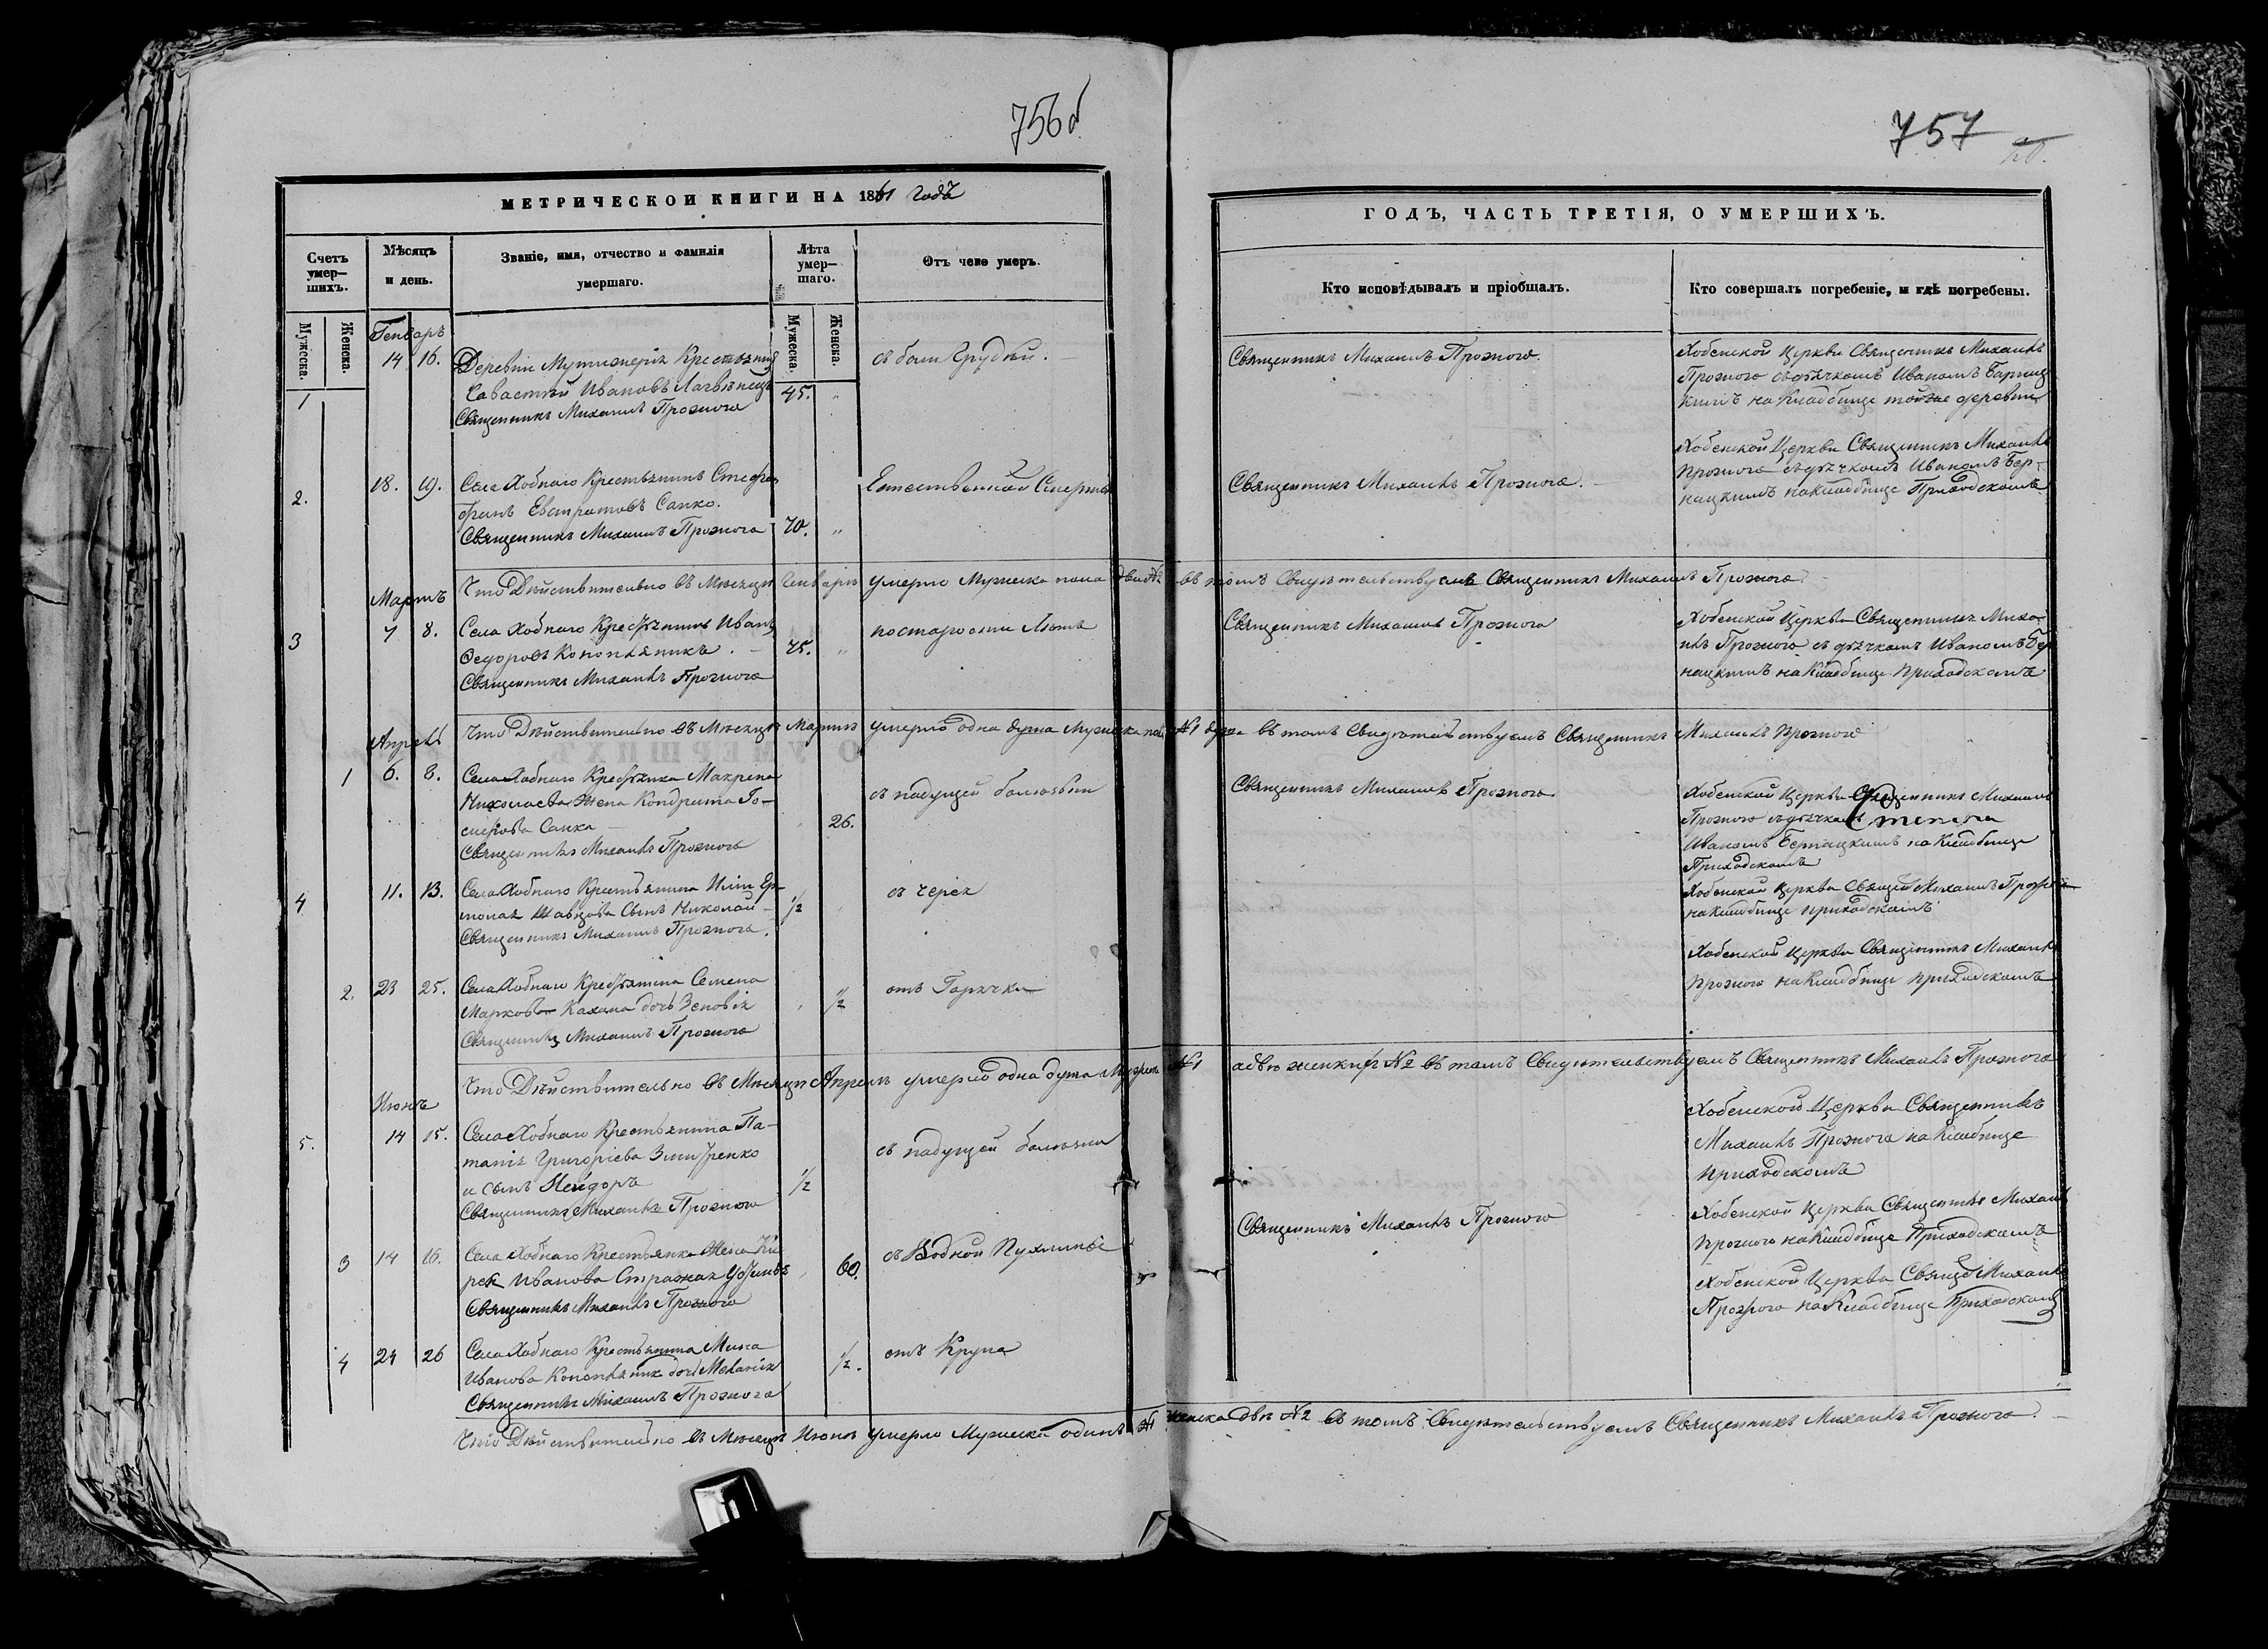 756 об
МЕТРИЧЕСКОЙ КНИГИ НА 1861 годъ
Счетъ умер-шихъ.
Мѣсяцъ и день.
Званіе, имя, отчество и фамилія умершаго.
Лѣта умер-шаго.
Отъ чего умеръ.
Мужеска.
Женска.
Мужеска.
Женска.
Генварь
1 14 16. Деревни Крестьянинъ
Савастій Ивановъ 45.
Священникъ Михаилъ Прожого
съ боли Грудки.
2. 18. 19. Села Хобнаго Крестьянинъ Стефа
фанъ Евстратовъ Сапко.
Священникъ Михаилъ Прожога 70.
Естественной Смертью
Что Дѣйствительно въ Мѣсяцѣ Генварѣ умерло Мужеска пола два №2 въ томъ Свидѣтельствуемъ Священникъ Михаилъ Прожога
Мартъ
3 7 8. Села Хобнаго Крестьянинъ Иванъ
Ѳедоровъ Конопляникъ. 75.
Священникъ Михаилъ Прожога
по старости Лѣтъ
Что Дѣйствительно въ Мѣсяцѣ Мартѣ умерло одна душа Мужеска пола №1 душа въ томъ Свидѣтельствуемъ Священникъ Михаилъ Прожого
Апрель
1 6. 8. Села Хобнаго Крестьянка Макрена
Николаева Жена Кондрата Іо-
сифова Сапка 26.
Священникъ Михаилъ Прожога
съ падущей болезни
4 11. 13. Села Хобнаго Крестьянина Иліи Ер-
молая Шавцова Сынъ Николай 1/2
Священникъ Михаилъ Прожога.
2. 23 25. Села Хобнаго Крестьянина Семена
Маркова Кахана дочь Зеновія 1/2
Священникъ Михаилъ Прожога
отъ Горячка
Что Дѣйствительно въ Мѣсяцѣ Апрелѣ умерло одна душа Мужеска №1 а двѣ женки №2 въ томъ Свидѣтельствуемъ Священникъ Михаилъ Прожога
Июнь
5. 14 15. Села Хобнаго Крестьянина Па-
Григоріева
и сынъ 1/2
Священникъ Михаилъ Прожого
съ падущей болезни
3 14 16. Села Хобнаго Крестьянка Жена Ки-
рея Иванова 60.
Священникъ Михаилъ Прожого
съ Водной Пухлины
4 24 26 Села Хобнаго Крестьянина Мина
Иванова Конопляник дочь Меланія 1/2.
Священникъ Михаилъ Прожога
отъ Крупа
Что Дѣйствительно въ Мѣсяцѣ Июнѣ умерло Мужеска одинъ №1 женска двѣ №2 въ томъ Свидѣтельствуемъ Священникъ Михаилъ Прожога.
757
ГОДЪ, ЧАСТЬ ТРЕТІЯ, О УМЕРШИХЪ.
Кто исповѣдывалъ и пріобщалъ.
Кто совершалъ погребеніе, и гдѣ погребены.
Священникъ Михаилъ Прожого.
Хобенской Церкви Священникъ Михаилъ
Прожого съ дьячкомъ Иваномъ Бернац
кимъ на Кладбище тойже деревни
Священникъ Михаилъ Прожога.
Хобенской Церкви Священникъ Михаилъ
Прожога съ дьячкомъ Иваномъ Бер-
нацкимъ на Кладбище Приходскомъ
Священникъ Михаилъ Прожого
Хобенской Церкви Священникъ Миха-
илъ Прожого съ дьячкомъ Иваномъ Бер
нацкимъ на Кладбище Приходскомъ
Священникъ Михаилъ Прожого
Хобенской Церкви Священникъ Михаилъ
Прожого съ дьячкомъ
Иваномъ Бернацкимъ на Кладбище
Приходскомъ
Хобенской Церкви Священ Михаилъ Прожого
на Кладбище приходскомъ
Хобенской Церкви Священникъ Михаилъ
Прожого на Кладбище приходскомъ
Хобенской Церкви Священникъ
Михаилъ Прожога на Кладбище
приходскомъ
Священникъ Михаилъ Прожого
Хобенской Церкви Священникъ Михаилъ
Прожого на Кладбище Приходскомъ
Хобенской Церкви Священ Михаилъ
Прожого на Кладбище Приходскомъ